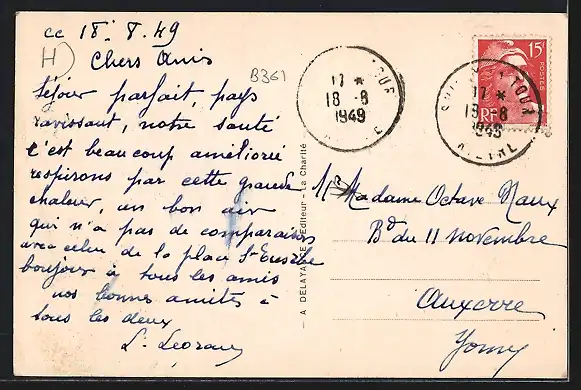 ce 18. 8. 49
H) Chers Amis
B361
Séjour parfait, pays
ravissant, notre santé
c'est beaucoup améliorié
respirons par cette grande
chaleur, un bon air
qui n'a pas de comparaison
avec celui de la place St Eusèbe
boujour à tous les amis
nos bonnes amités à
tous les deux
L.
A DELAYA Editeur - La Charité
17 *
18 - 8
1949
17 *
18 - 8
1949
15F
POSTES
RF
Madame Octave Naux
Bd du 11 novembre
Auxerre
Yonne